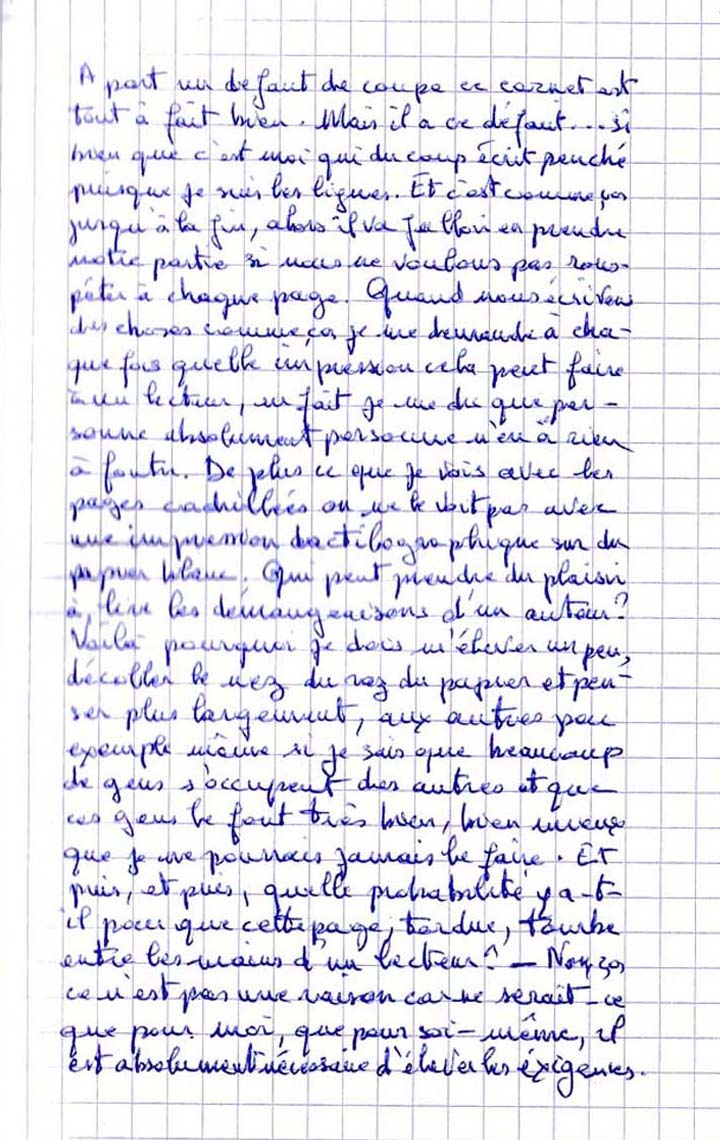 A part un defaut de coupe ce carnet est
tout à fait bien. Mais il a ce défaut... si
bien que c'est moi qui du coup écrit penché
puisque je suis les lignes. Et c'est comme ça
jusqu'à la fin, alors il va falloir en prendre
notre partie si nous ne voulons pas rous-
péter à chaque page. Quand nous écrivons
des choses comme ça je me demande à cha-
que fois quelle impression cela peut faire
à un lecteur, en fait je me dis que per-
sonne absolument personne n'en à rien
à foutre. De plus ce que je vois avec les
pages cadrillées on ne le voit pas avec
une impression dactilographique sur du
papier blanc. Qui peut prendre du plaisir
à lire les démangeaisons d'un auteur?
Voilà pourquoi je dois m'élever un peu,
décoller le nez du raz du papier et pen-
ser plus largement, aux autres par
exemple même si je sais que beaucoup
de gens s'occupent des autres et que
ces gens le font très bien, bien mieux
que je ne pourrais jamais le faire. Et
puis, et puis, quelle probabilité y a-t-
il pour que cette page, tordue, tombe
entre les mains d'un lecteur? — Non ça
ce n'est pas une raison car ne serait-ce
que pour moi, que pour soi-même, il
est absolument nécessaire d'élever les éxigences.